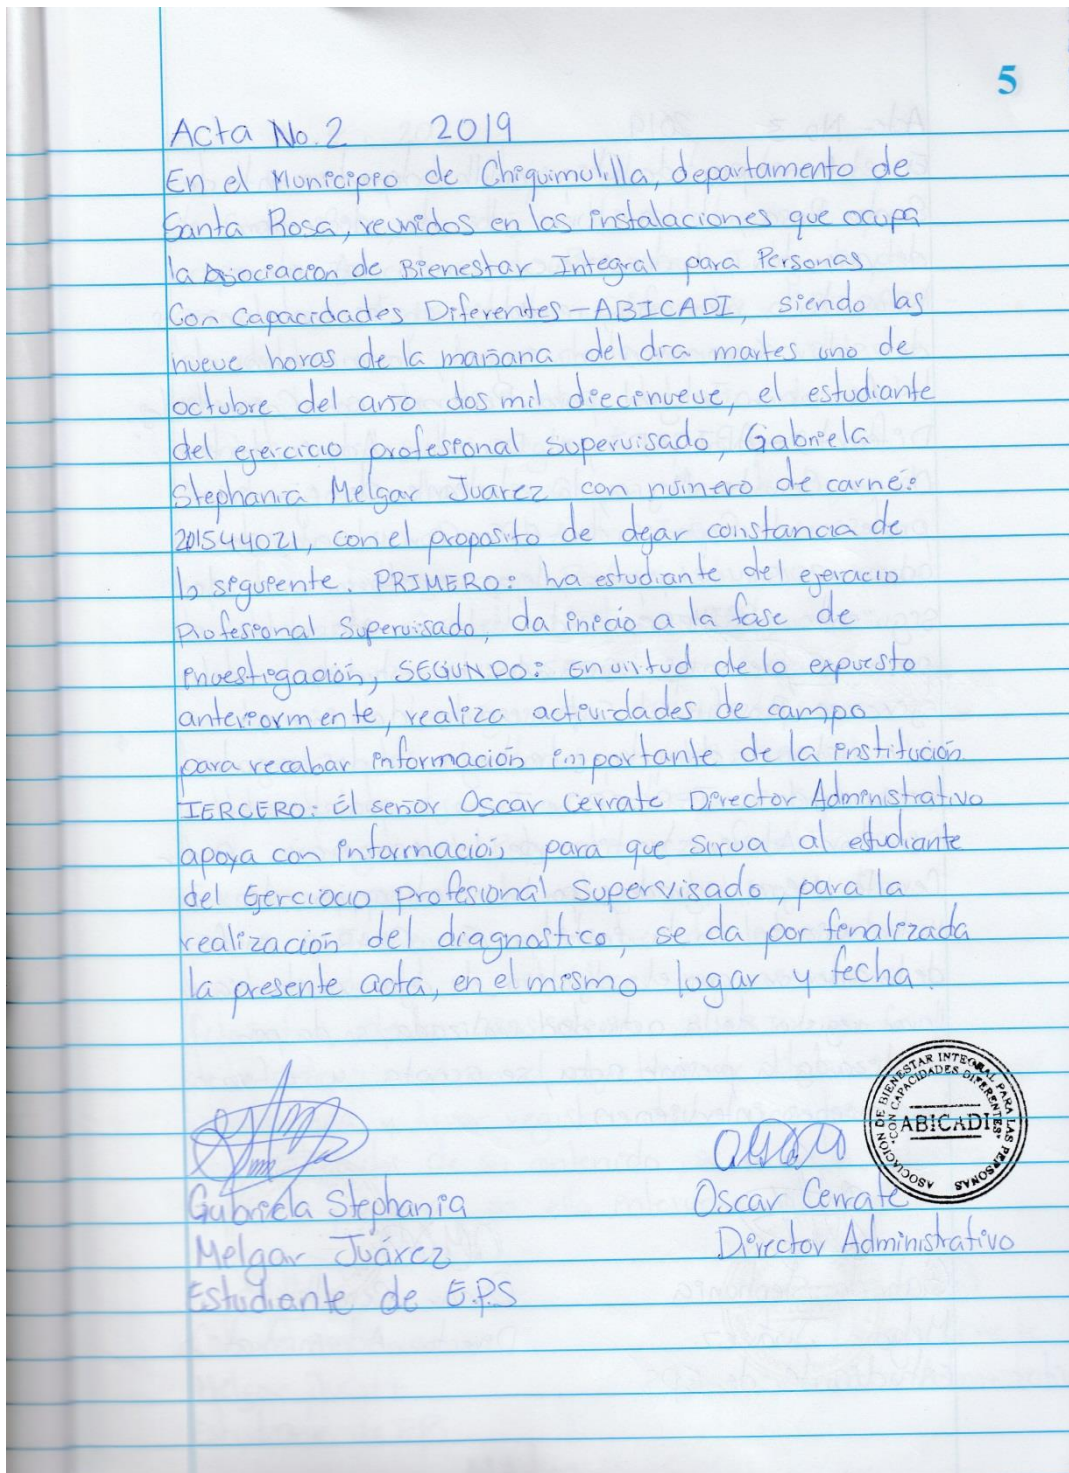 5
Acta No. 2 2019
En el Municipio de Chiquimulilla, departamento de
Santa Rosa, reunidos en las instalaciones que ocupa
la Asociacion de Bienestar Integral para Personas
Con Capacidades Diferentes-ABICADI, siendo las
nueve horas de la mañana del dia martes uno de
octubre del año dos mil diecinueve, el estudiante
del ejercicio profesional supervisado, Gabriela
Stephania Melgar Juarez con número de carné:
201544021, con el proposito de dejar constancia de
lo siguiente. PRIMERO: La estudiante del ejercicio
Profesional Supervisado, da inicio a la fase de
investigación, SEGUNDO: En virtud de lo expuesto
anteriormente, realiza actividades de campo
para recabar información importante de la institución
TERCERO: El señor Oscar Cerrate Director Administrativo
apoya con información para que sirva al estudiante
del Ejercicio Profesional Supersvisado, para la
realización del diagnostico, se da por finalizada
la presente acta, en el mismo lugar y fecha.
ASOCIACIÓN DE BIENESTAR INTEGRAL PARA LAS PERSONAS
"CON CAPACIDADES DIFERENTES"
ABICADI
Gabriela Stephania Oscar Cerrate
Melgar Juárez Director Administrativo
Estudiante de E.P.S